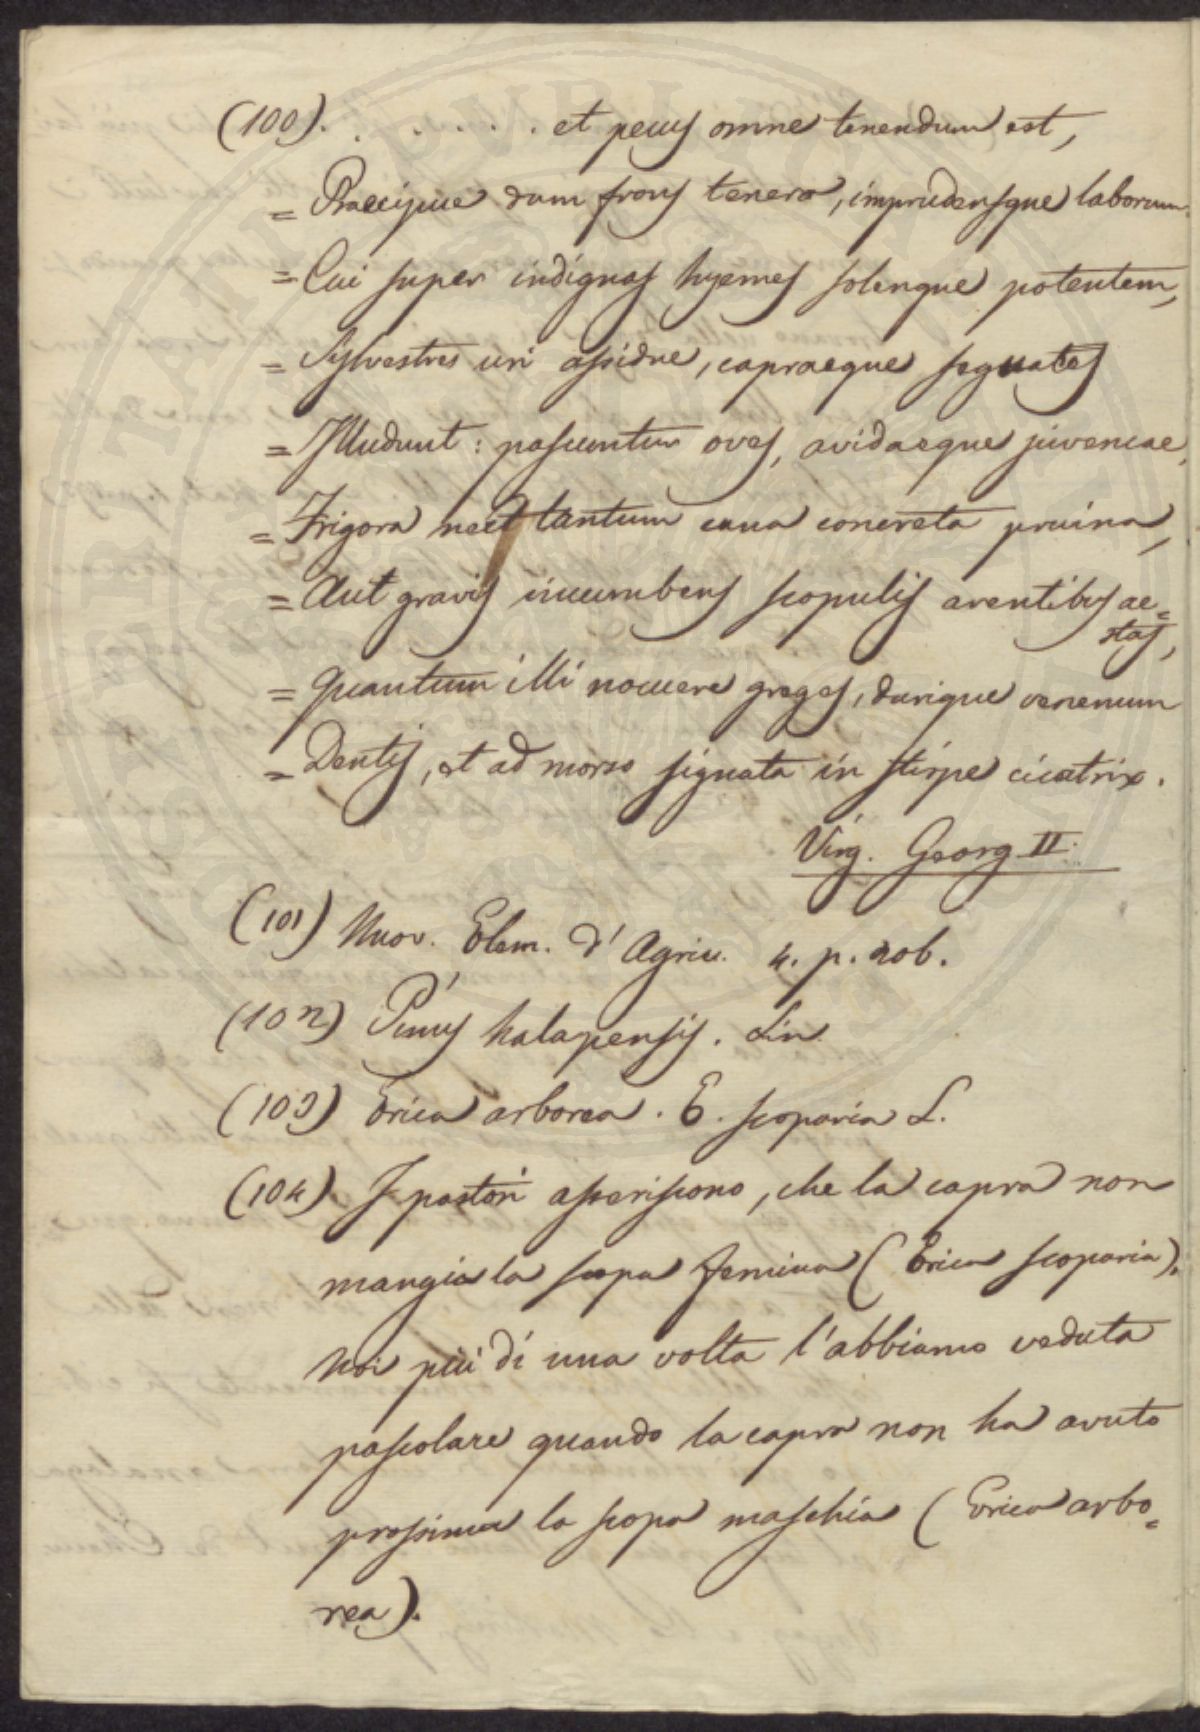 (100). . . . . . . et pecus omne tenendum est,
= Praecipue dum frons tenera, imprudensque laborum.
= Cui super indignas hyemes solemque potentem,
= Sylvestres uri assidue, capraeque sequaces
= Illudunt: pascuntur oves, avidaeque juvencae,
= Frigora nec tantum cana concreta pruina,
= Aut gravis incumbens scopulis arentibus ae=
stas,
= Quantum illi nocuere greges, durique venenum
= Dentis, et ad morso signata in stirpe cicatrix.
Virg. Georg. II.
(101) Nuov. Elem. d'Agric. 4. p. 206.
(102) Pinus halapensis. Lin.
(103) Erica arborea. E. scoparia L.
(104) I pastori asseriscono, che la capra non
mangia la scopa femina (Erica scoparia).
Noi più di una volta l'abbiamo veduta
pascolare quando la capra non ha avuto
prossima la scopa maschia (Erica arbo=
rea).